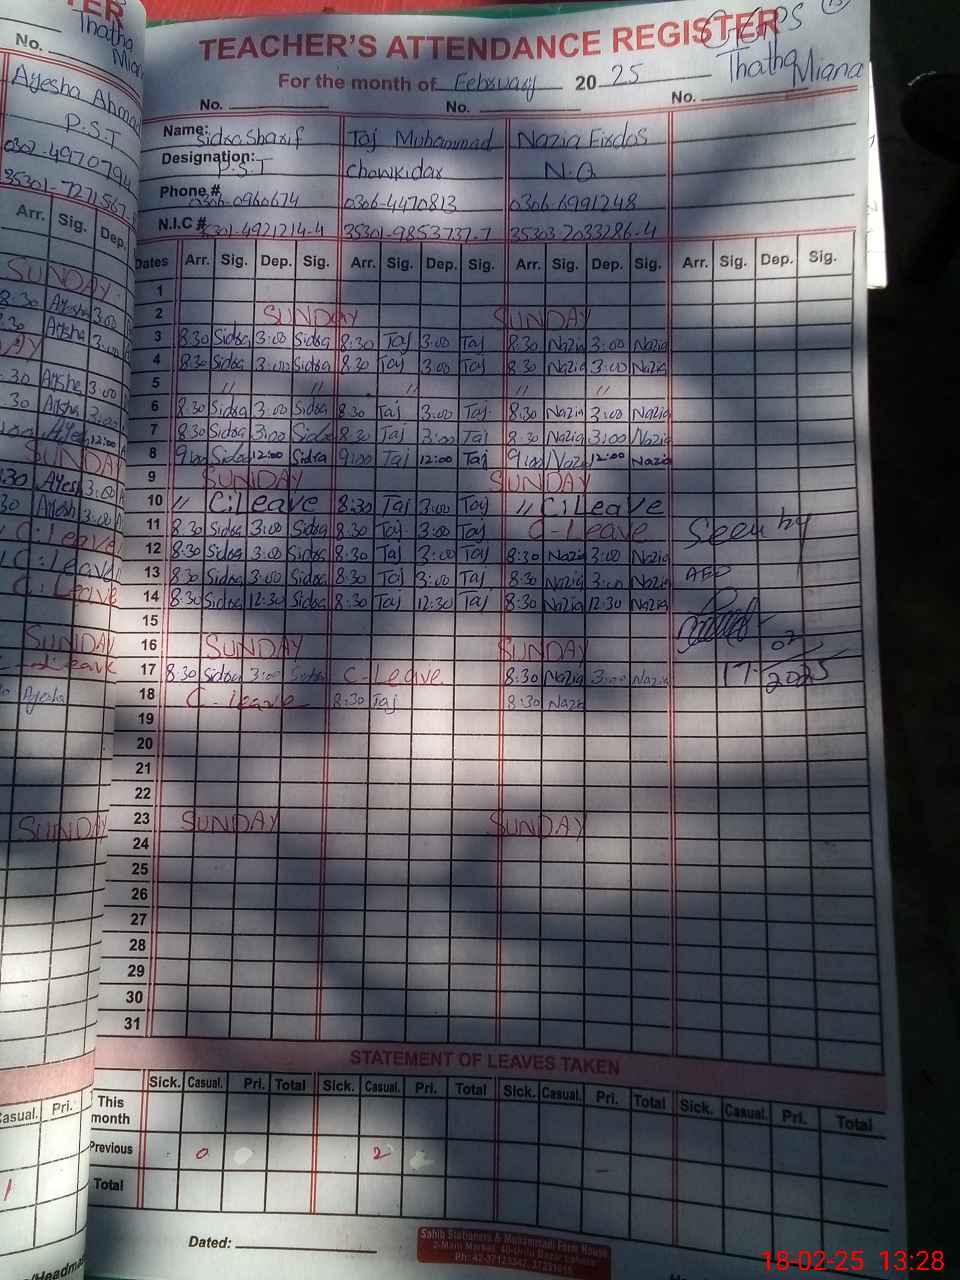 TER
Thatha
Miana
No.
Ayesha Ahmad
P.S.T
0302-4970794
35301-7271567-
Arr. Sig. Dep.
SUNDAY
8:30 Ayesha 3:00
:30 Ayesha 3:00
AY
:30 Ayesha 3:00
:30 Ayesha 3:00
Ayesha 12:00
SUNDAY
8:30 Ayesha 3:00
:30 Ayesha 3:00
C:Leave
C:Leave
C:Leave
SUNDAY
Leave
Ayesha
SUNDAY
Casual. Pri.
1
/Headma
GGPS
Thatha Miana
TEACHER'S ATTENDANCE REGISTER
For the month of February 2025
No. No. No.
Name: Sidra Sharif Taj Muhammad Nazia Firdos
Designation: P.S.T Chowkidar N.Q
Phone # 0306-0960674 0306-4470813 0306-6991248
N.I.C # 5301-4921214-4 35301-9853737-7 35303-2033286-4
Dates Arr. Sig. Dep. Sig. Arr. Sig. Dep. Sig. Arr. Sig. Dep. Sig. Arr. Sig. Dep. Sig.
1
2 SUNDAY SUNDAY
3 8:30 Sidra 3:00 Sidra 8:30 Taj 3:00 Taj 8:30 Nazia 3:00 Nazia
4 8:30 Sidra 3:00 Sidra 8:30 Taj 3:00 Taj 8:30 Nazia 3:00 Nazia
5 // // // // //
6 8:30 Sidra 3:00 Sidra 8:30 Taj 3:00 Taj 8:30 Nazia 3:00 Nazia
7 8:30 Sidra 3:00 Sidra 8:30 Taj 3:00 Taj 8:30 Nazia 3:00 Nazia
8 9:00 Sidra 12:00 Sidra 9:00 Taj 12:00 Taj 9:00 Nazia 12:00 Nazia
9 SUNDAY SUNDAY
10 // C:Leave 8:30 Taj 3:00 Taj // C:Leave
11 8:30 Sidra 3:00 Sidra 8:30 Taj 3:00 Taj C-Leave Seen by
12 8:30 Sidra 3:00 Sidra 8:30 Taj 3:00 Taj 8:30 Nazia 3:00 Nazia
13 8:30 Sidra 3:00 Sidra 8:30 Taj 3:00 Taj 8:30 Nazia 3:00 Nazia AEO
14 8:30 Sidra 12:30 Sidra 8:30 Taj 12:30 Taj 8:30 Nazia 12:30 Nazia
15
16 SUNDAY SUNDAY 02
17 8:30 Sidra 3:00 Sidra C-Leave 8:30 Nazia 3:00 Nazia 17- 2025
18 C-leave 8:30 Taj 8:30 Nazia
19
20
21
22
23 SUNDAY SUNDAY
24
25
26
27
28
29
30
31
STATEMENT OF LEAVES TAKEN
Sick. Casual. Pri. Total Sick. Casual. Pri. Total Sick. Casual. Pri. Total Sick. Casual. Pri. Total
This month
Previous 0 2
Total
Dated:
Sahib Stationers & Muhammadi Form House
2-Main Market, 40-Urdu Bazar Lahore
Ph: 42-37121347, 37231018
18-02-25 13:28